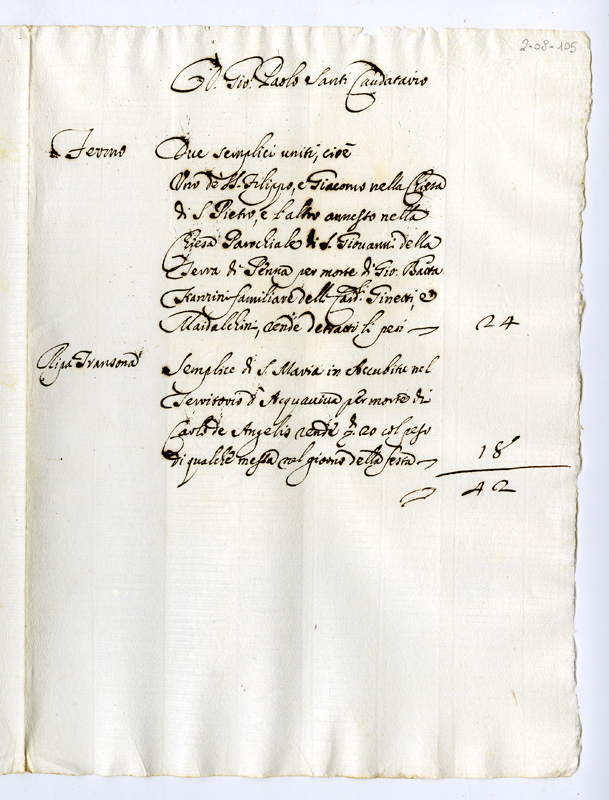 2-08-105
D. Gio: Paolo Santi Caudatario
Fermo Due semplici uniti, cioè
Uno de SS. Filippo, e Giacomo nella Chiesa
di S. Pietro, e l'altro annesso nella
Chiesa Parochiale di S. Giovanni della
Terra di Penna per morte di Gio: Batta
Franzini familiare dell Card. Ginetti, e
Maidalchini, rende detratti li pesi 24
Ripa Transona Semplice di S. Maria in Accubitu nel
Territorio d'Acquaviva per morte di
Carlo de Angelis rende 20 col peso
di qualche messa nel giorno della festa 18
42